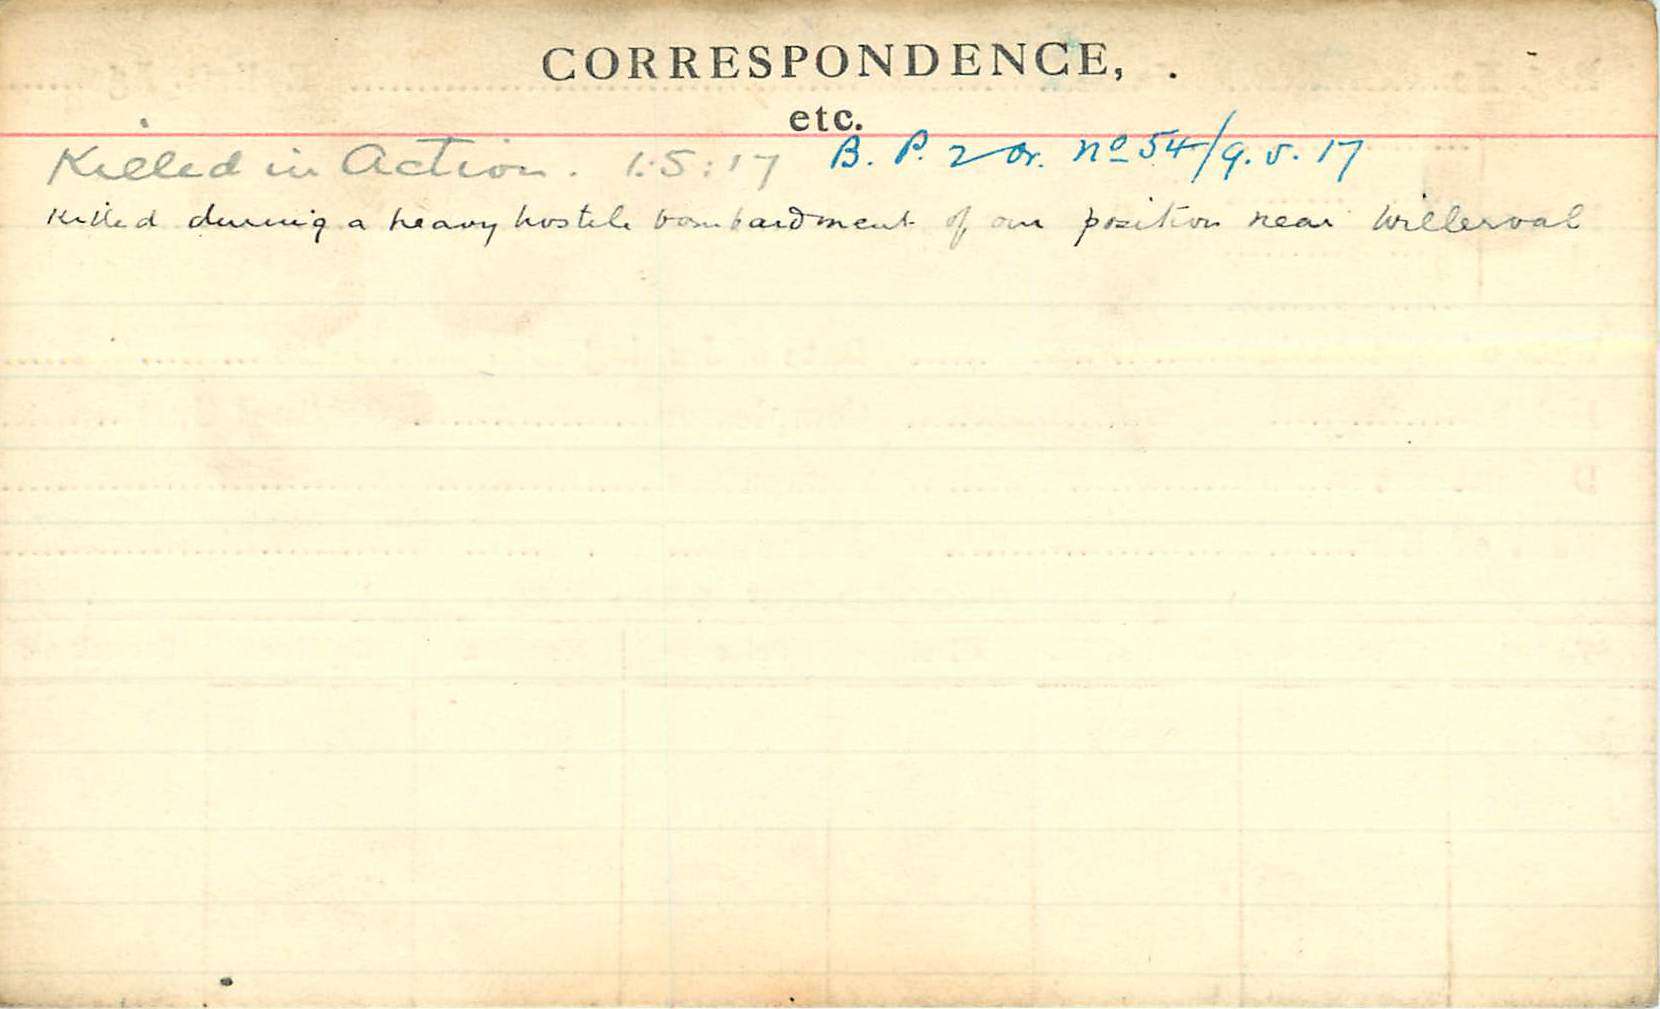 CORRESPONDENCE,
etc.
Killed in Action. 1:5:17 B. P. 2 Or. No 54/9.5.17
Killed during a heavy hostile bombardment of our position near Willerval